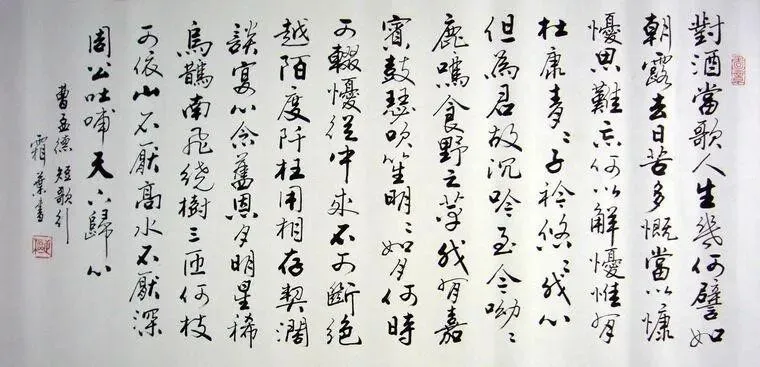 對酒當歌人生幾何譬如
朝露去日苦多慨當以慷
懮思難忘何以解懮惟有
杜康青〻子衿悠〻我心
但為君故沉吟至今呦〻
鹿鳴食野之草我有嘉
賓鼓瑟吹笙明〻如月何時
可輟懮從中來不可斷絕
越陌度阡枉用相存契濶
談宴心念舊恩月明星稀
烏鵲南飛繞樹三匝何枝
可依山不厭高水不厭深
周公吐哺天下歸心
曹孟德短歌行
霜葉書